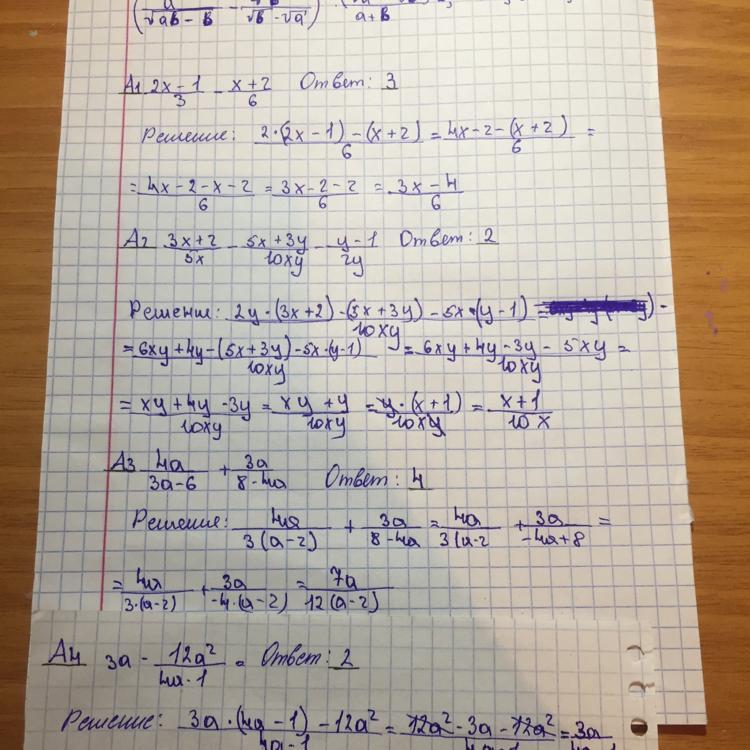 (a/(√ab - b) - √b/(√b - √a))
a+b
А1 (2x-1)/3 - (x+2)/6 Ответ: 3
Решение: (2·(2x-1)-(x+2))/6 = (4x-2-(x+2))/6 =
= (4x-2-x-2)/6 = (3x-2-2)/6 = (3x-4)/6
А2 (3x+2)/5x - (5x+3y)/10xy - (y-1)/2y Ответ: 2
Решение: (2y·(3x+2)-(5x+3y)-5x·(y-1))/10xy =
= (6xy+4y-(5x+3y)-5x·(y-1))/10xy = (6xy+4y-3y-5xy)/10xy =
= (xy+4y-3y)/10xy = (xy+y)/10xy = (y·(x+1))/10xy = (x+1)/10x
А3 4a/(3a-6) + 3a/(8-4a) Ответ: 4
Решение: 4a/(3(a-2)) + 3a/(8-4a) = 4a/(3(a-2 + 3a/(-4a+8) =
= 4a/(3·(a-2)) + 3a/(-4·(a-2)) = 7a/(12(a-2))
А4 3a - 12a²/(4a-1) = Ответ: 2
Решение: (3a·(4a-1)-12a²)/(4a-1) = (12a²-3a-12a²)/(4a-1) = 3a/(4a-1)